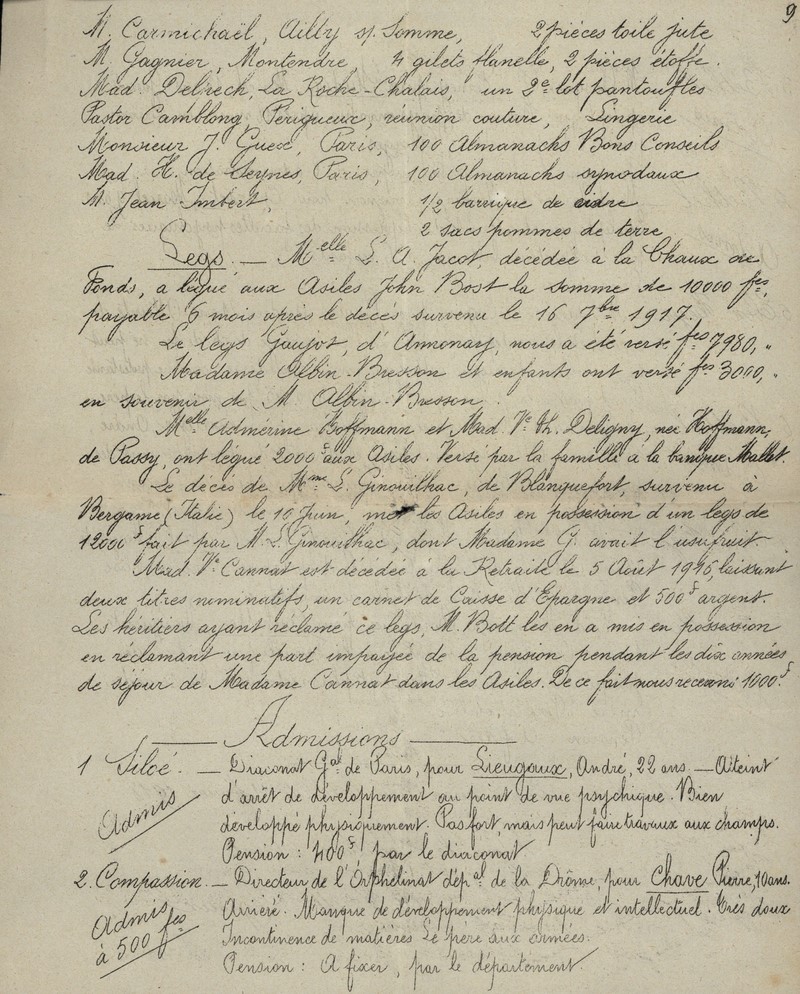 9
M. Carmichaël, Ailly s/ Somme, 2 pièces toile jute
M. Gagnier, Montendre, 4 gilets flanelle, 2 pièces étoffe.
Mad. Delrech, La Roche-Chalais, un 2e lot pantoufles
Pastor Camblong, Périgueux, réunion couture, Lingerie
Monsieur J. Guex, Paris, 100 Almanachs Bons Conseils
Mad. H. de Seynes, Paris, 100 Almanachs synodaux
M. Jean Imbert, 1/2 barrique de cidre
2 sacs pommes de terre
Legs. — Melle L. A. Jacot, décédée à la Chaux de
Fonds, a légué aux Asiles John Bost la somme de 10000 fcs,
payable 6 mois après le décès survenu le 16 7bre 1917.
Le legs Gaujot, d'Annonay, nous a été versé fcs 7980, "
Madame Albin-Bresson et enfants ont versé fcs 3000, "
en souvenir de M. Albin-Bresson.
Melle Admerine Hoffmann et Mad. Ve Th. Deligny, née Hoffmann,
de Passy, ont légué 2000 f aux Asiles. Versé par la famille à la banque Mallet.
Le décès de Mme L. Ginouilhac, de Blanquefort, survenu à
Bergame (Italie) le 10 Juin, met les Asiles en possession d'un legs de
12000 f fait par M. L. Ginouilhac, dont Madame G. avait l'usufruit.
Mad. Ve Cannat est décédée à la Retraite le 5 Août 1916, laissant
deux titres nominatifs, un carnet de Caisse d'Epargne et 500 f argent.
Les héritiers ayant réclamé ce legs, M. Bott les en a mis en possession
en réclamant une part impayée de la pension pendant les dix années
de séjour de Madame Cannat dans les Asiles. De ce fait nous recevons 1000 f
Admissions
1 Siloé. — Diaconat Gal de Paris, pour Lieugaux, André, 22 ans. — Atteint
Admis
d'arrêt de développement au point de vue psychique. Bien
développé physiquement. Pas fort, mais peut faire travaux aux champs.
Pension : 400 f par le diaconat
2. Compassion. — Directeur de l'Orphelinat dépal de la Drôme, pour Chave Pierre, 10 ans.
Admis
à 500 fcs
Arriéré. Manque de développement physique et intellectuel. Très doux
Incontinence de matières. Le père aux armées.
Pension : A fixer, par le département.